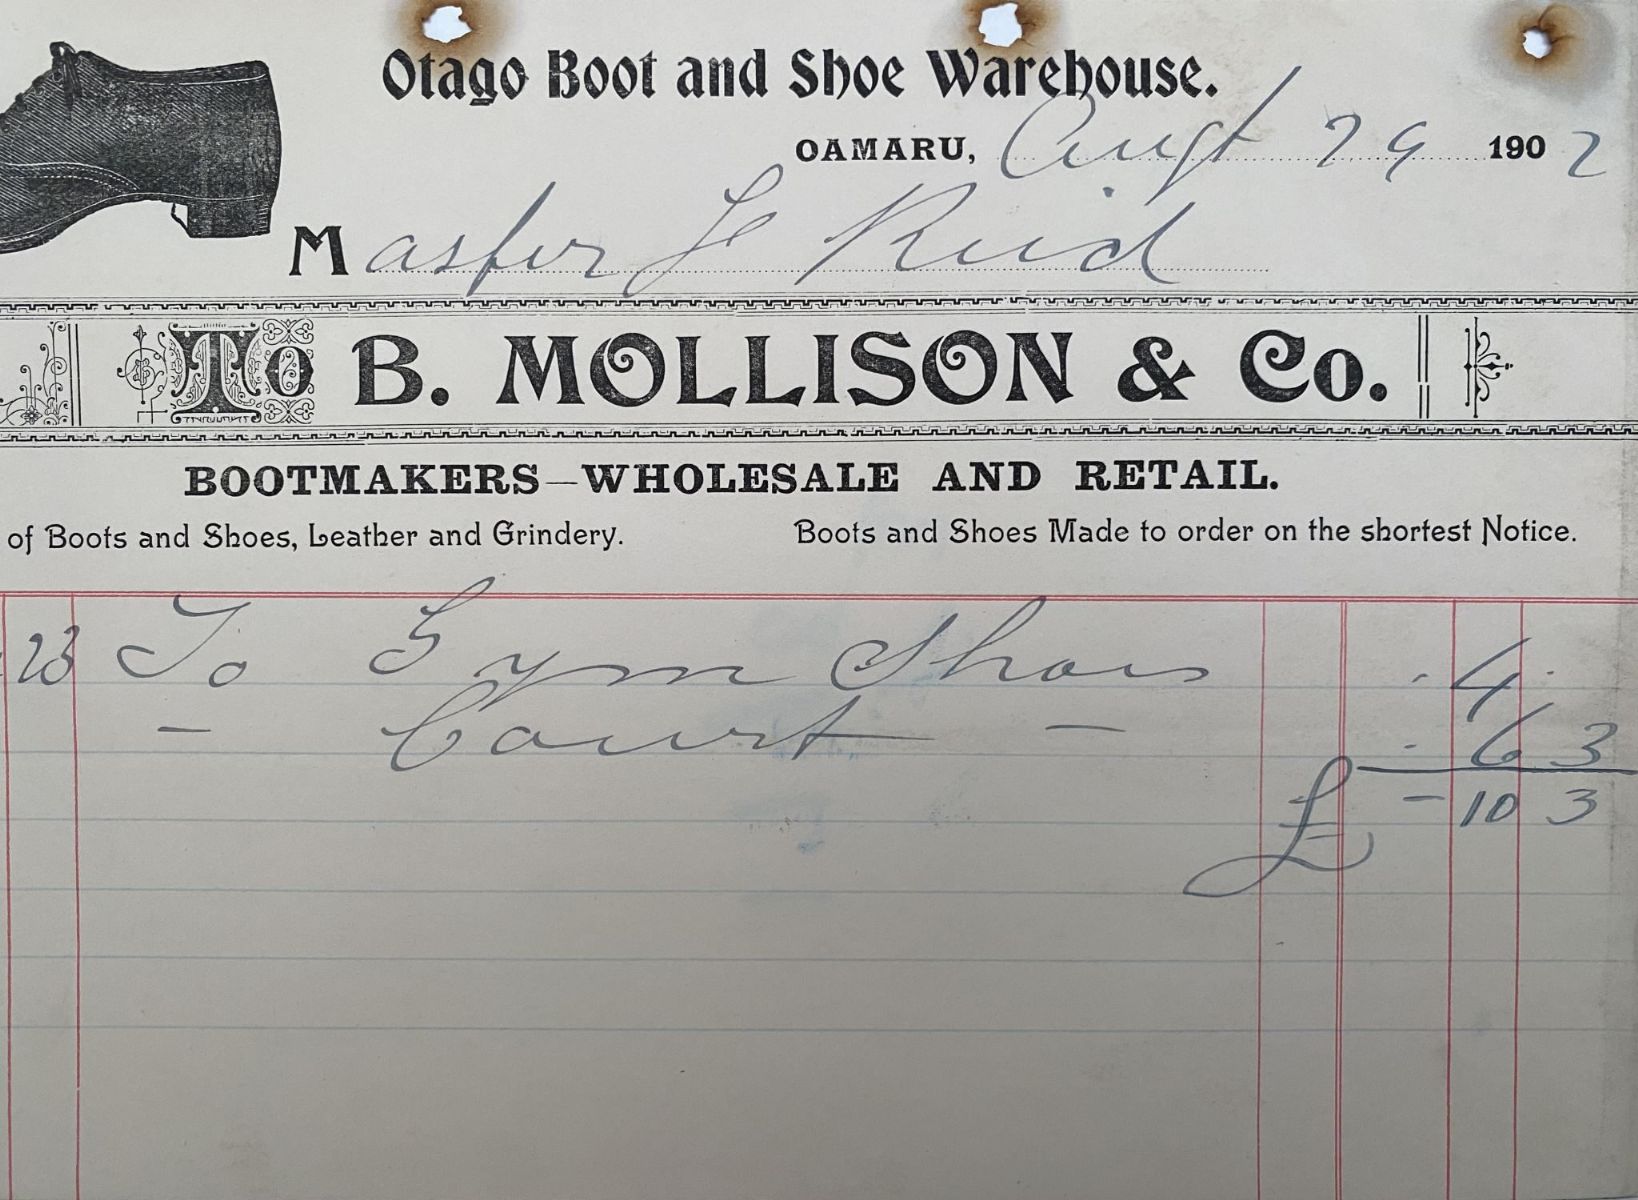 Otago Boot and Shoe Warehouse.
OAMARU, Augt 29 1902
Master F Reid
To B. MOLLISON & Co.
BOOTMAKERS—WHOLESALE AND RETAIL.
of Boots and Shoes, Leather and Grindery. Boots and Shoes Made to order on the shortest Notice.
23 To Gym Shoes . 4 .
— Court — . 6 3
£ — 10 3